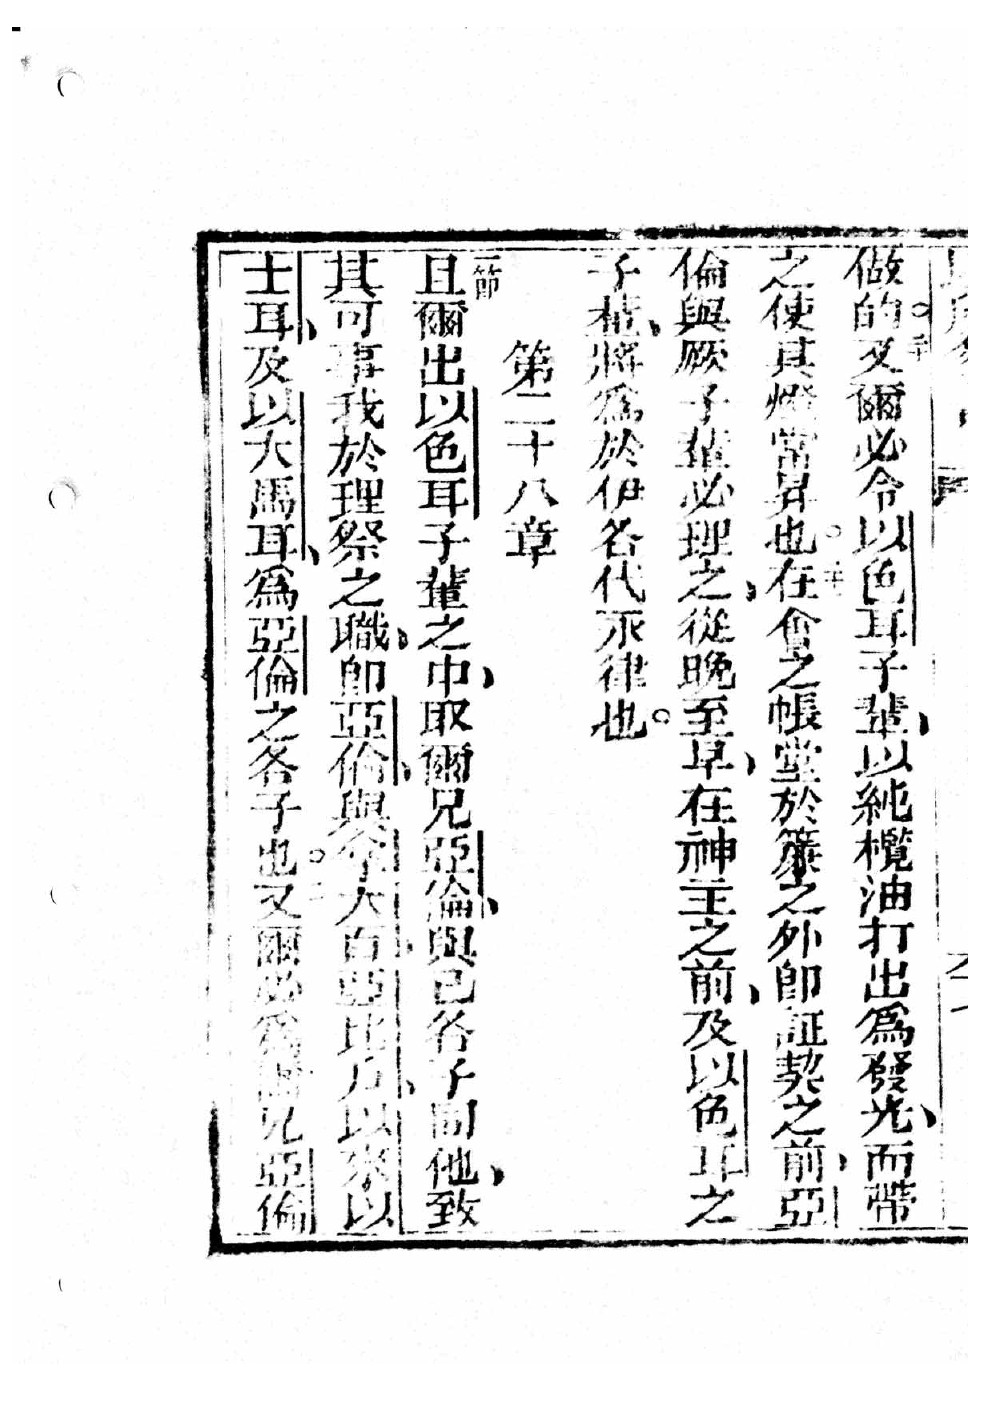 做的。二十又爾必令以色耳子輩、以純欖油打出爲發光、而帶
之使其燈常昇也。二十一在會之帳堂於簾之外卽証契之前、亞
倫與厥子輩必理之、從晚至早、在神主之前、及以色耳之
子輩、將爲於伊各代永律也。
第二十八章
一節且爾出以色耳子輩之中、取爾兄亞倫、與己各子同他、致
其可事我於理祭之職、卽亞倫、與拿大百、亞比戶、以來以
士耳、及以大馬耳、爲亞倫之各子也。二又爾必爲爾兄亞倫